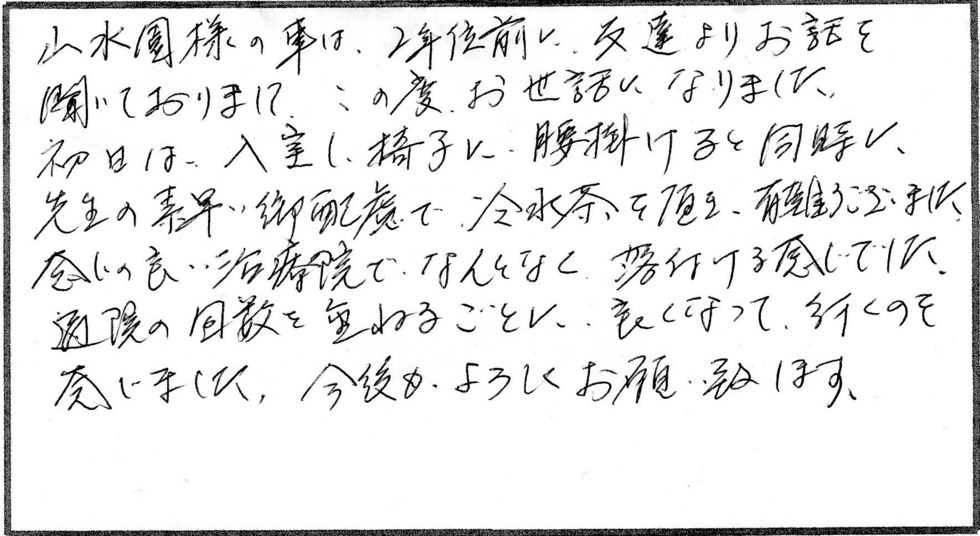 山水園様の事は、2年位前に、友達よりお話を
聞いておりまして、この度、お世話になりました。
初日は、入室し、椅子に、腰掛けると同時に、
先生の素早い御配慮で、冷水茶を頂き、有難うございました。
感じの良い治療院で、なんとなく、落付ける感じでした。
通院の回数を重ねるごとに、良くなって、行くのを
感じました。今後か、よろしくお願い致します。